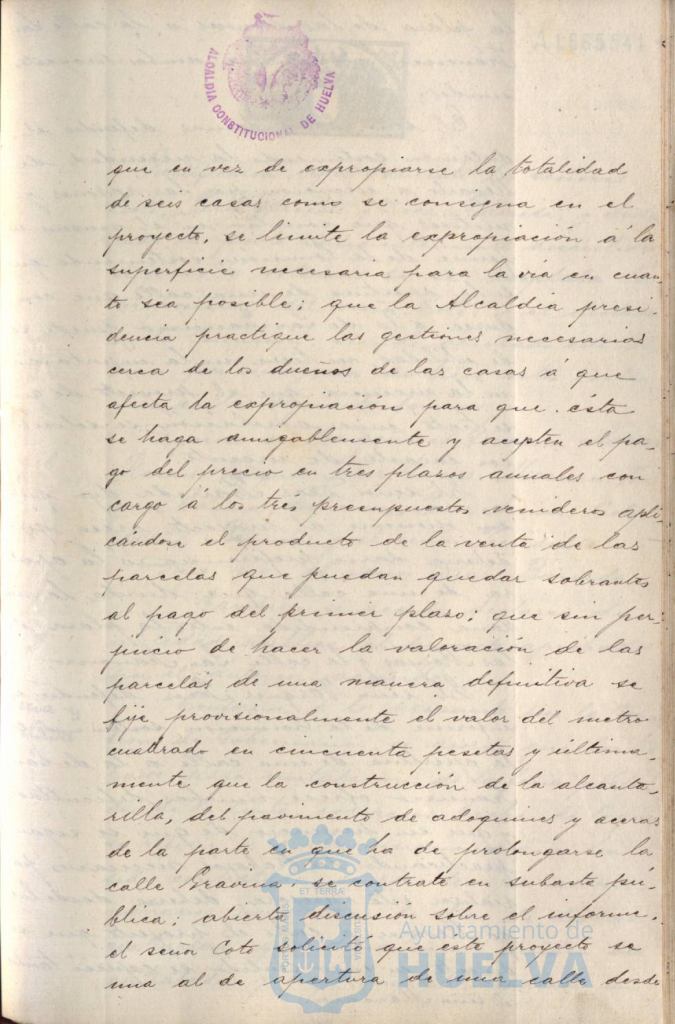 ALCALDIA CONSTITUCIONAL DE HUELVA
que en vez de expropiarse la totalidad
de seis casas como se consigna en el
proyecto, se limite la expropiación á la
superficie necesaria para la via en cuan
to sea posible; que la Alcaldia presi-
dencia practique las gestiones necesarias
cerca de los dueños de las casas á que
afecta la expropiación para que ésta
se haga amigablemente y acepten el pa-
go del precio en tres plazos anuales con
cargo á los tres presupuestos venideros apli
cándose el producto de la venta de las
parcelas que puedan quedar sobrantes
al pago del primer plazo; que sin per-
juicio de hacer la valoración de las
parcelas de una manera definitiva se
fije provisionalmente el valor del metro
cuadrado en cincuenta pesetas y última-
mente que la construcción de la alcanta-
rilla, del pavimento de adoquines y aceras
de la parte en que ha de prolongarse la
calle Gravina, se contrate en subasta pú-
blica; abierta discusión sobre el informe,
el señor Coto solicitó que este proyecto se
una al de apertura de una calle desde
ET TERRÆ
Ayuntamiento de
HUELVA